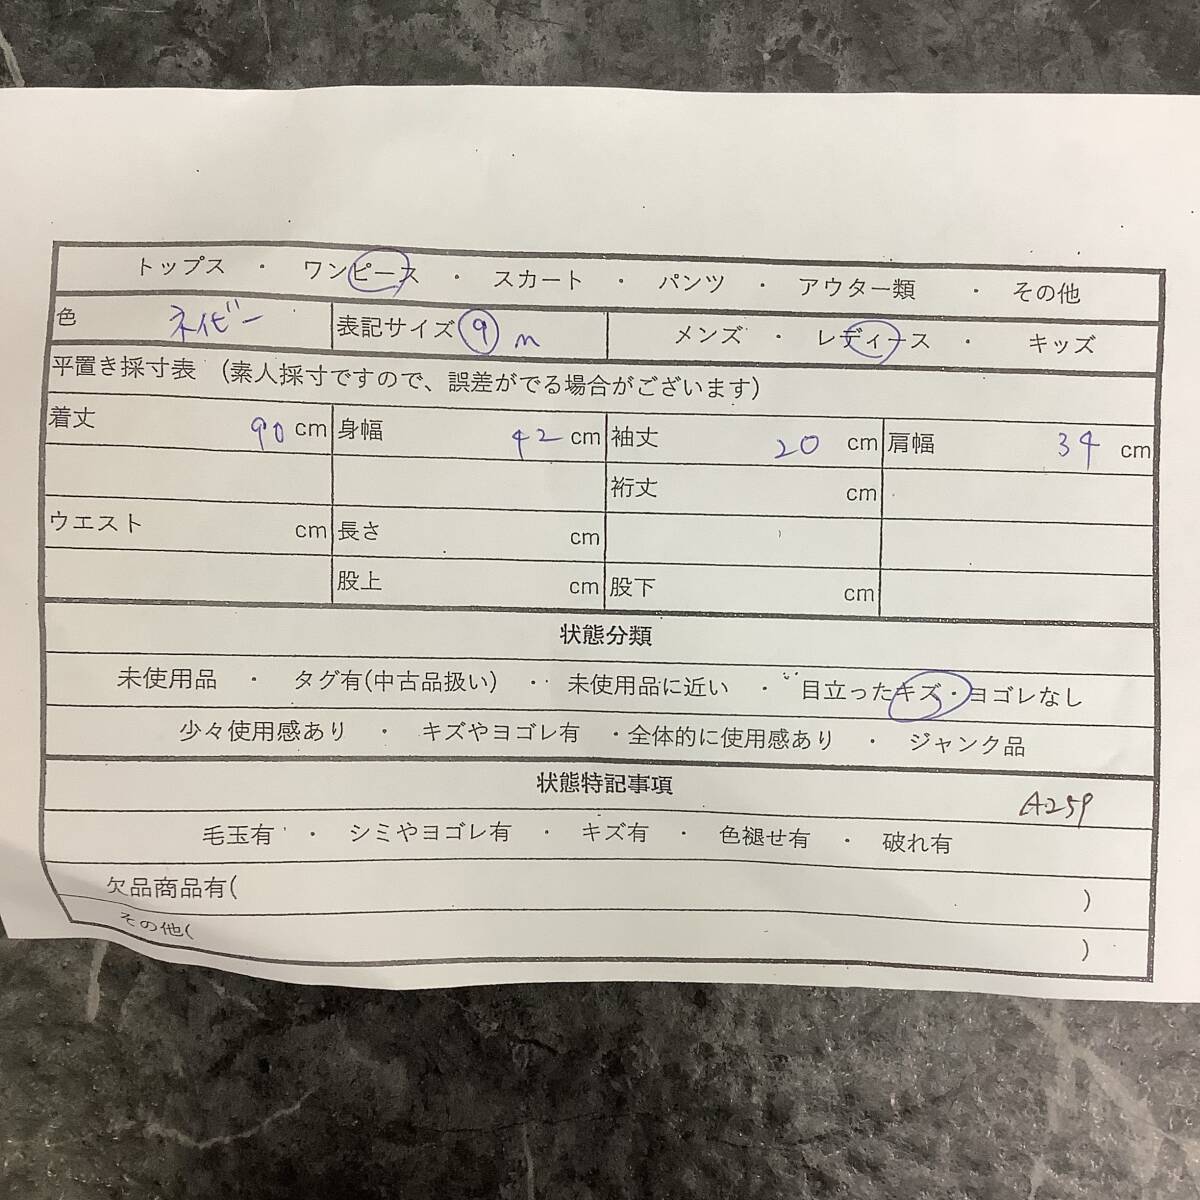 トップス ・ ワンピース ・ スカート ・ パンツ ・ アウター類 ・ その他
色 ネイビー 表記サイズ 9 m メンズ ・ レディース ・ キッズ
平置き採寸表 （素人採寸ですので、誤差がでる場合がございます）
着丈 90 cm 身幅 42 cm 袖丈 20 cm 肩幅 34 cm
裄丈 cm
ウエスト cm 長さ cm
股上 cm 股下 cm
状態分類
未使用品 ・ タグ有(中古品扱い) ・ 未使用品に近い ・ 目立ったキズ・ヨゴレなし
少々使用感あり ・ キズやヨゴレ有 ・全体的に使用感あり ・ ジャンク品
状態特記事項
A259
毛玉有 ・ シミやヨゴレ有 ・ キズ有 ・ 色褪せ有 ・ 破れ有
欠品商品有( )
その他( )